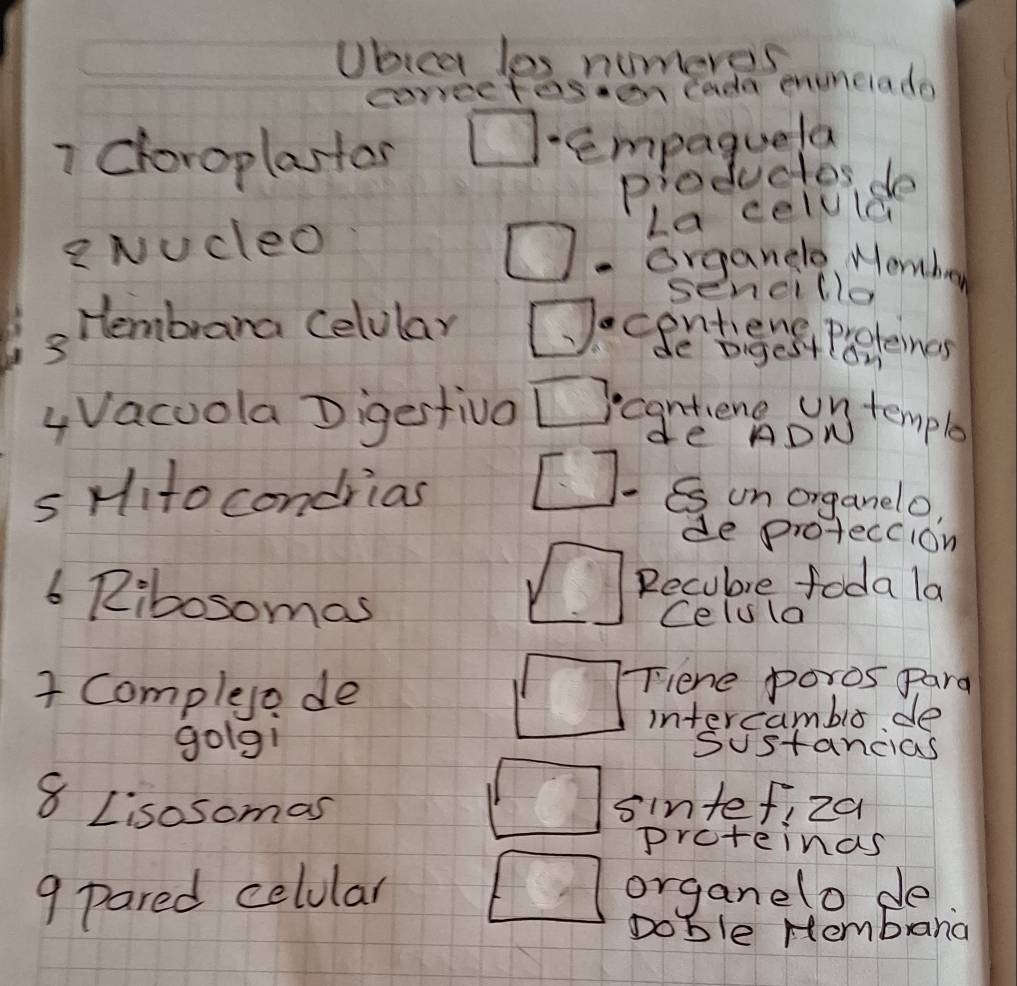 Ubica los numeros
correctos en cada enunciado
1 Cloroplastos
2 Nucleo
3 Membrana celular
4 Vacuola Digestivo
5 Mitocondrias
6 Ribosomas
7 Complejo de
golgi
8 Lisosomas
9 pared celular
- Empaqueta
productos de
La celula
- Organelo Membran
sencillo
contiene proteinas
de Digestion
contiene un templo
de ADN
- Es un organelo.
de protección
Recubre toda la
Celula
Tiene poros para
intercambio de
Sustancias
sintetiza
proteinas
organelo de
Doble Membrana